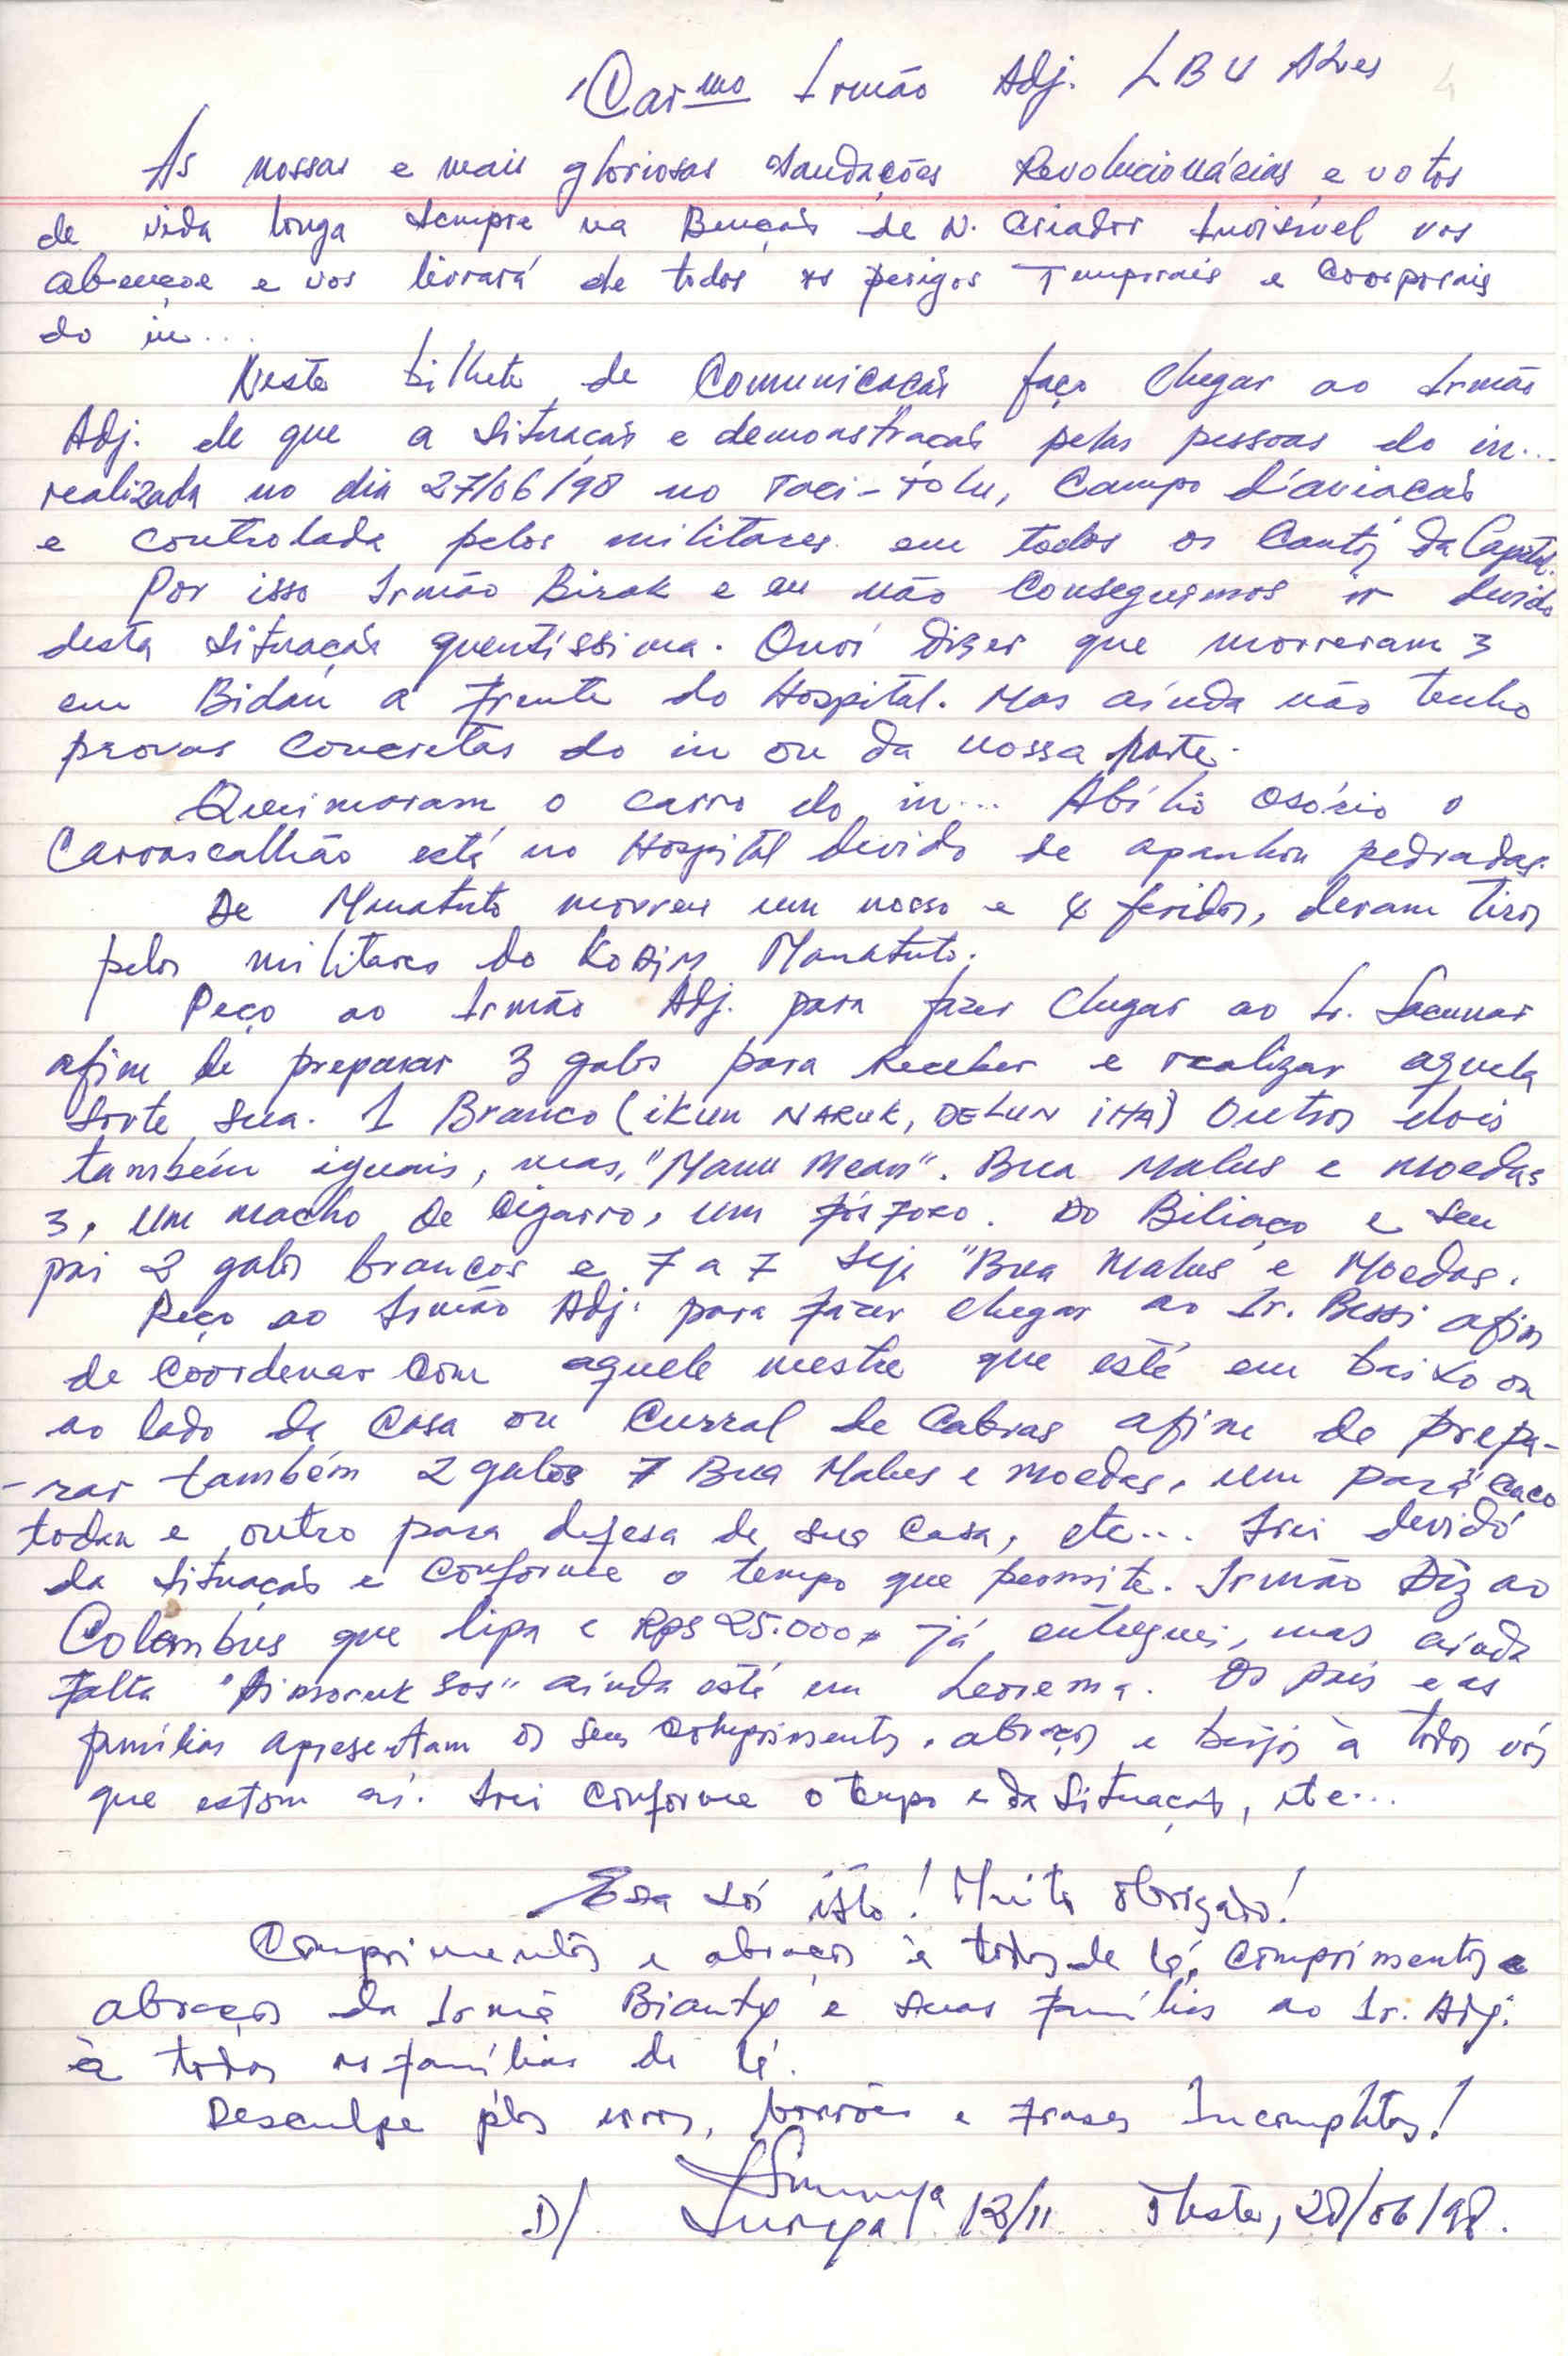 Carmo Irmão Adj. L B U Alves
As nossas e mais gloriosas Saudações Revolucionárias e votos
de vida longa sempre na Bençaõ de N. Criador Invisível vos
abençoe e vos livrará de todos os perigos Temporais e Coorporais
do in...
Neste bilhete de Comunicaçaõ faço chegar ao Irmão
Adj. de que a Situaçaõ e demonstraçaõ pelas pessoas do in...
realizada no dia 27/06/98 no Taci-Tolu, Campo d'aviacaõ
e controlada pelos militares em todos os Cantos da Capital.
Por isso Irmão Birak e eu não Conseguimos ir devido
desta Situaçaõ quentíssima. Ouvi dizer que morreram 3
em Bidau a frente do Hospital. Mas aínda não tenho
provas Concretas do in ou da nossa parte.
Queimaram o carro do in... Abílio Osório o
Carrascalhão está no Hospital devido de apanhou pedradas.
De Manatuto morreu um nosso e 4 feridos, deram tiros
pelos militares do Kodim Manatuto.
Peço ao Irmão Adj. para fazer chegar ao Ir.
afim de preparar 3 galos para Receber e realizar aquela
Sorte sua. 1 Branco (ikun NARUK, DELUN iHA) Outros dois
também iguais, mas, "Manu Mean". Bua Malus e moedas
3, um macho de Cigarro, um fósforo. Do Biliaço e seu
pai 2 galos brancos e 7 a 7 seja "Bua Malus e Moedas.
Peço ao Irmão Adj. para fazer chegar ao Ir. Bessi afim
de coordenar com aquele mestre que está em baixo ou
ao lado da Casa ou Curral de Cabras afim de prepa-
-rar também 2 galos 7 Bua Malus e moedas, um para
e outro para defesa de sua Casa, etc... Irei devido
da Situaçaõ e Conforme o tempo que permite. Irmão Diz ao
Colombus que lipa e Rps 25.000, já entreguei, mas aínda
falta sos" aínda está em Leorema. Os pais e as
famílias apresentam os seus comprimentos, abraços e beijos à todos vós
que estam aí. Irei Conforme o tempo e da Situaçaõ, etc...
Era só isto! Muito obrigado!
Comprimentos e abraços à todos de lá, Comprimentos e
abraços da Irmã e suas famílias ao Ir. Adj.
à todas as famílias de lá.
Desculpe p'los erros, borrões e frases Incompletas!
D/ 12/11 28/06/98.